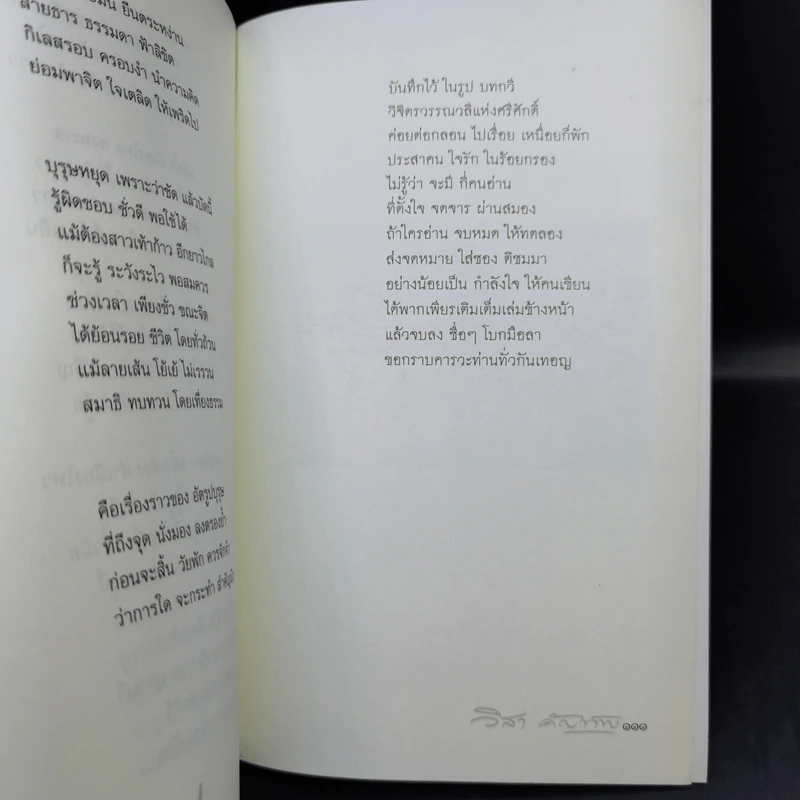 ยืนตระหง่าน
สายธาร ธรรมดา ฟ้าลิขิต
กิเลสรอบ ครอบงำ นำความคิด
ย่อมพาจิต ใจเตลิด ให้เพริดไป
บุรุษหยุด เพราะว่าชัด แล้วบัดนี้
รู้ผิดชอบ ชั่วดี พอใช้ได้
แม้ต้องสาวเท้าก้าว อีกยาวไกล
ก็จะรู้ ระวังระไว พอสมควร
ช่วงเวลา เพียงชั่ว ขณะจิต
ได้ย้อนรอย ชีวิต โดยทั่วถ้วน
แม้ลายเส้น โย้เย้ ไม่เรรวน
สมาธิ ทบทวน โดยเที่ยงธรรม
คือเรื่องราวของ อัตรูปบุรุษ
ที่ถึงจุด นั่งมอง ลงตรองย้ำ
ก่อนจะสิ้น วัยพัก ควรจักจำ
ว่าการใด จะกระทำ
บันทึกไว้ ในรูป บทกวี
วิจิตรวรรณวลีแห่งศรีศักดิ์
ค่อยต่อกลอน ไปเรื่อย เหนื่อยก็พัก
ประสาคน ใจรัก ในร้อยกรอง
ไม่รู้ว่า จะมี กี่คนอ่าน
ที่ตั้งใจ จดจาร ผ่านสมอง
ถ้าใครอ่าน จบหมด ให้ทดลอง
ส่งจดหมาย ใส่ซอง ติชมมา
อย่างน้อยเป็น กำลังใจ ให้คนเขียน
ได้พากเพียรเติมเต็มเล่มข้างหน้า
แล้วจบลง ซื่อๆ โบกมือลา
ขอกราบคารวะท่านทั่วกันเทอญ
วิสา คัญทัพ ๑๑๑